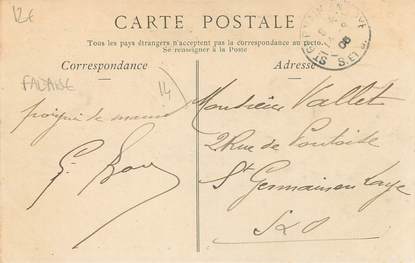 12€
CARTE POSTALE
Tous les pays étrangers n'acceptent pas la correspondance au recto.
Se renseigner à la Poste
Correspondance
Adresse
FALAISE
14
poignée de mains
G.
Monsieur Vallet
2 Rue de Pontoise
St Germain en Laye
S & O
08